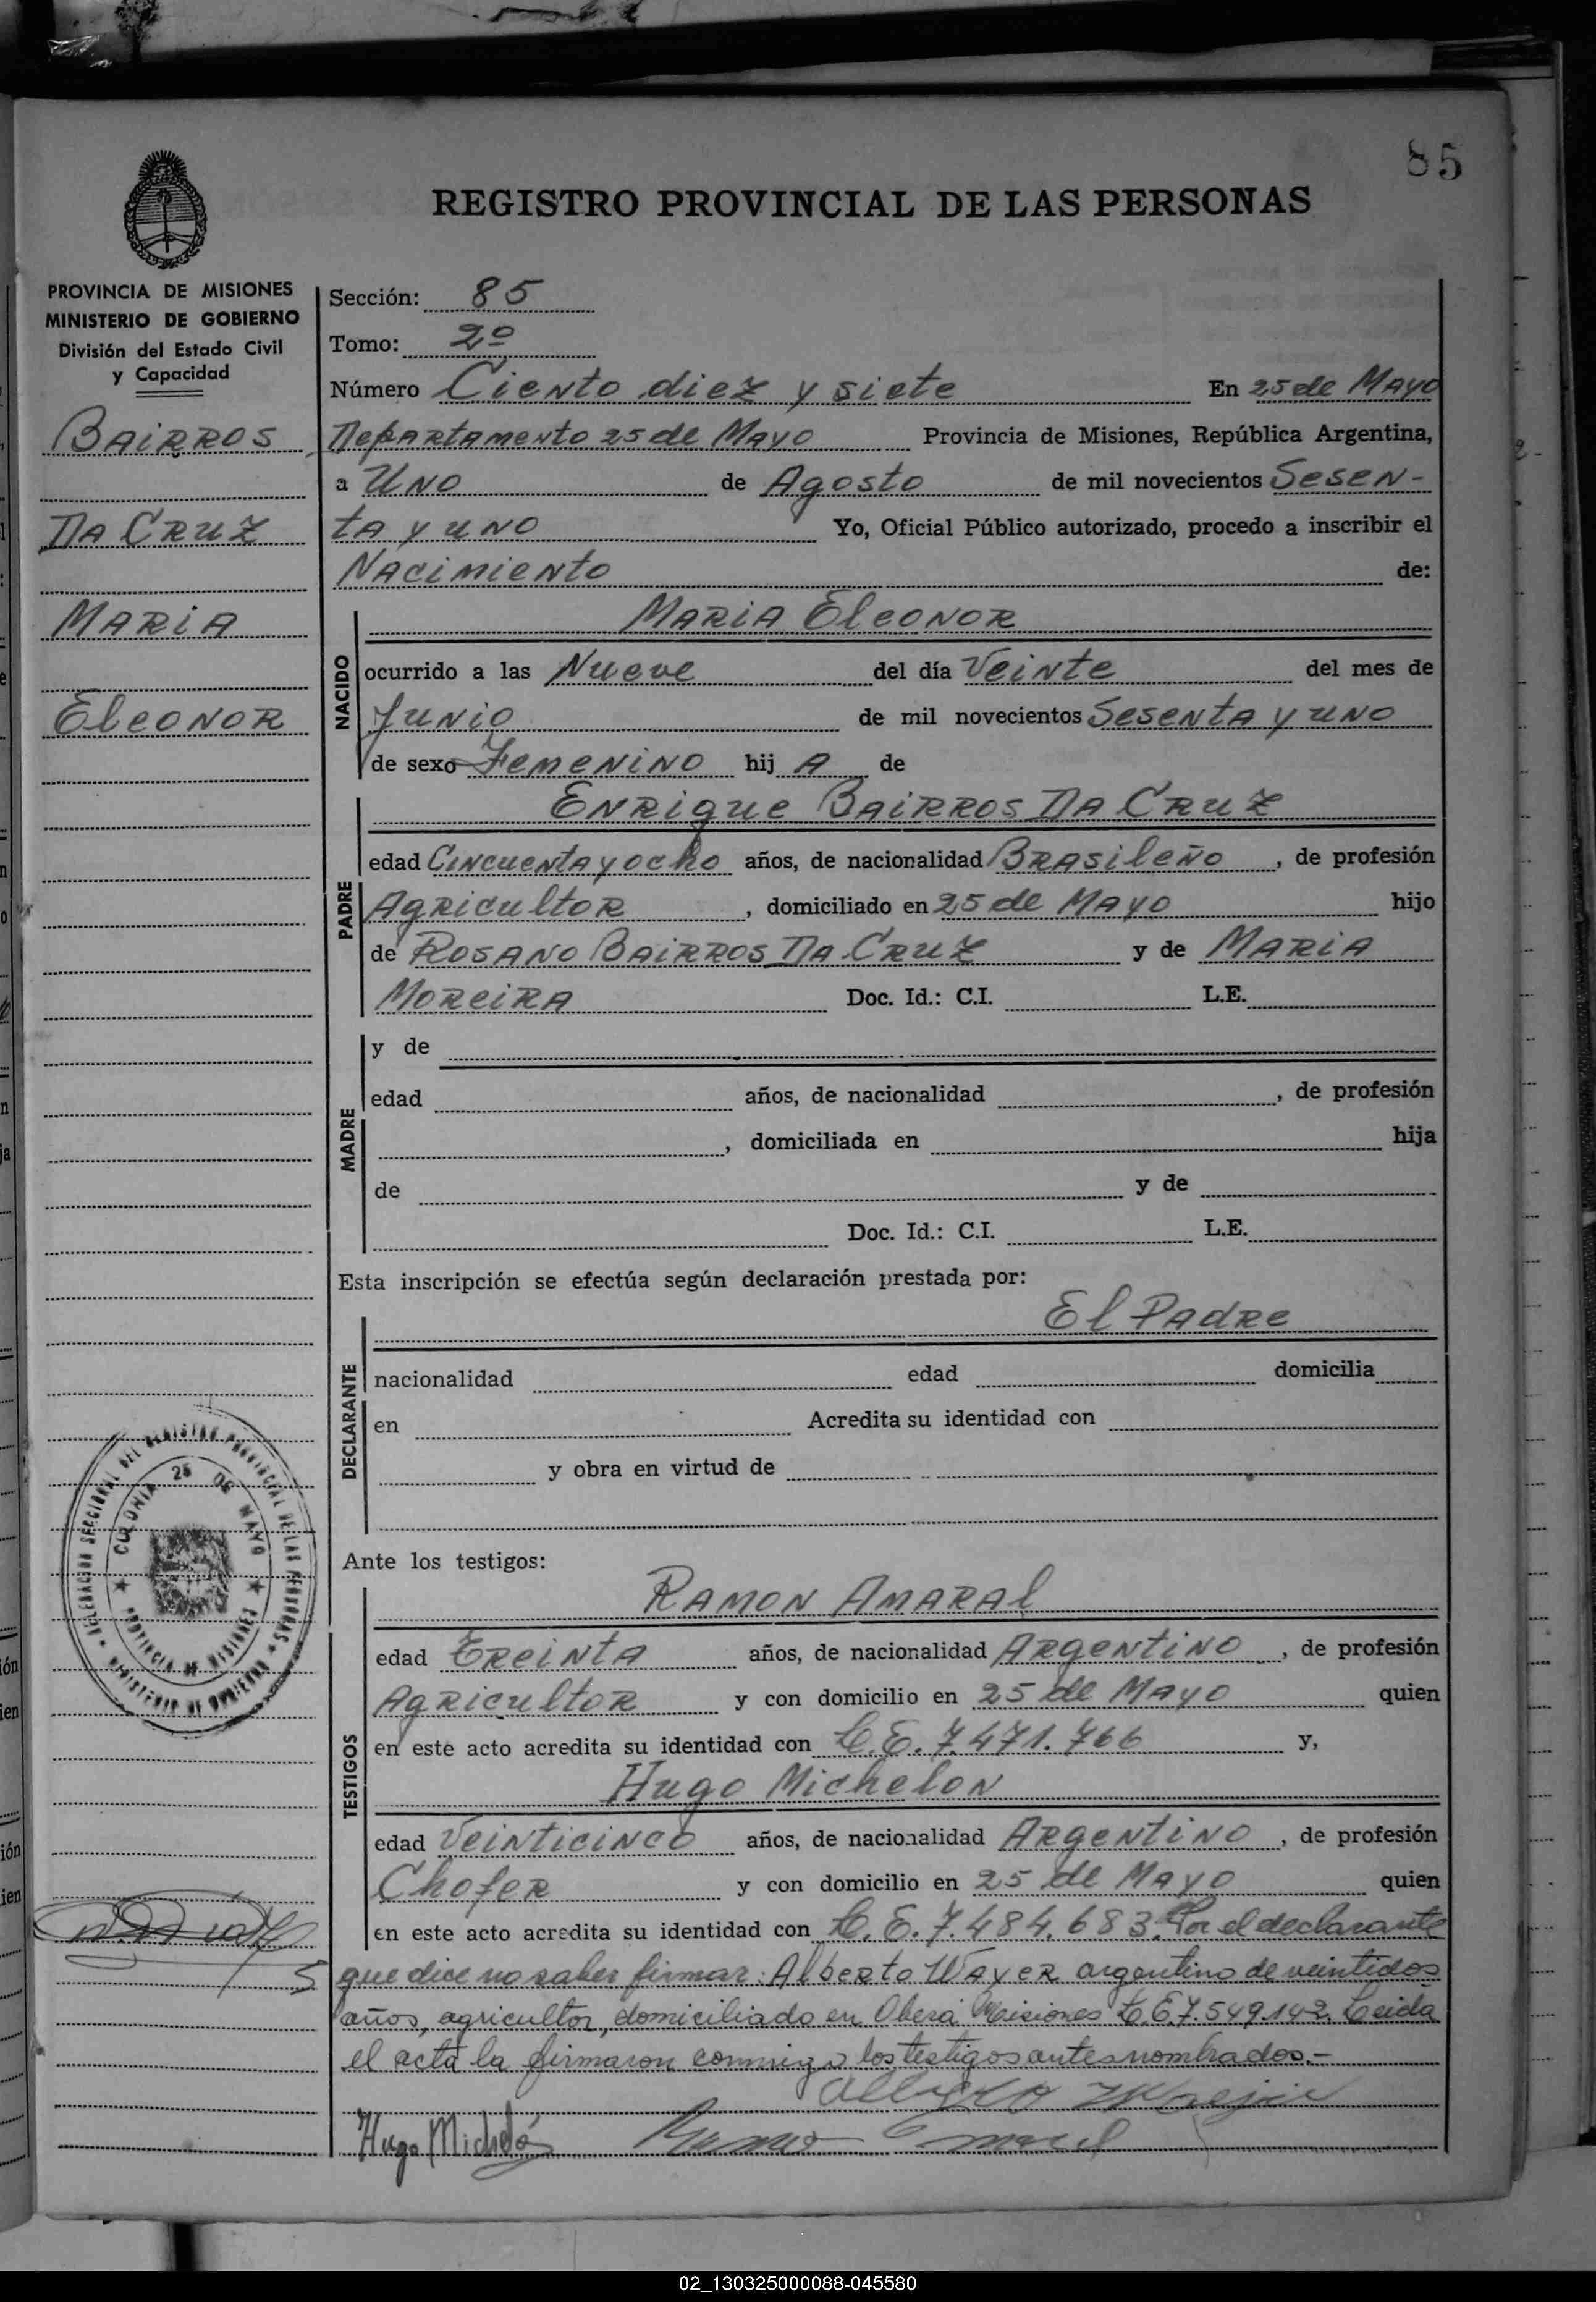 85
REGISTRO PROVINCIAL DE LAS PERSONAS
PROVINCIA DE MISIONES
MINISTERIO DE GOBIERNO
División del Estado Civil
y Capacidad
BAIRROS
DA CRUZ
MARIA
ELEONOR
Sección: 85
Tomo: 2º
Número Ciento diez y siete En 25 de Mayo
Departamento 25 de Mayo Provincia de Misiones, República Argentina,
a Uno de Agosto de mil novecientos Sesen-
ta y uno Yo, Oficial Público autorizado, procedo a inscribir el
Nacimiento de:
NACIDO
Maria Eleonor
ocurrido a las Nueve del día Veinte del mes de
Junio de mil novecientos Sesenta y uno
de sexo Femenino hij A de
PADRE
Enrique Bairros Da Cruz
edad Cincuenta y ocho años, de nacionalidad Brasileño, de profesión
Agricultor, domiciliado en 25 de Mayo hijo
de Rosano Bairros Da Cruz y de Maria
Moreira Doc. Id.: C.I. L.E.
MADRE
y de
edad años, de nacionalidad , de profesión
, domiciliada en hija
de y de
Doc. Id.: C.I. L.E.
Esta inscripción se efectúa según declaración prestada por:
El Padre
DECLARANTE
nacionalidad edad domicilia
en Acredita su identidad con
y obra en virtud de
Ante los testigos:
TESTIGOS
Ramon Amaral
edad Treinta años, de nacionalidad Argentino, de profesión
Agricultor y con domicilio en 25 de Mayo quien
en este acto acredita su identidad con L.E. 7.471.766 y,
Hugo Michelon
edad Veinticinco años, de nacionalidad Argentino, de profesión
Chofer y con domicilio en 25 de Mayo quien
en este acto acredita su identidad con L.E. 7.484.683. Por el declarante
que dice no saber firmar: Alberto Wayer argentino de veintidos
años, agricultor, domiciliado en Oberá Misiones L.E 7.549.142. Leida
el acta la firmaron conmigo los testigos antes nombrados.-
Hugo Michelón
DELEGACION SECCIONAL DEL REGISTRO PROVINCIAL DE LAS PERSONAS
MINISTERIO DE GOBIERNO
COLONIA 25 DE MAYO
PROVINCIA DE MISIONES
02_130325000088-045580